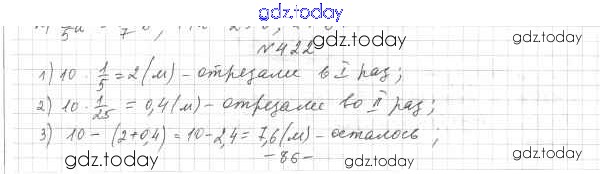 gdz.today
№422 gdz.today
1) 10 · 1/5 = 2 (м) – отрезали в I раз;
2) 10 · 1/25 = 0,4 (м) – отрезали во II раз;
3) 10 – (2+0,4) = 10 – 2,4 = 7,6 (м) – осталось;
gdz.today – 86 – gdz.today